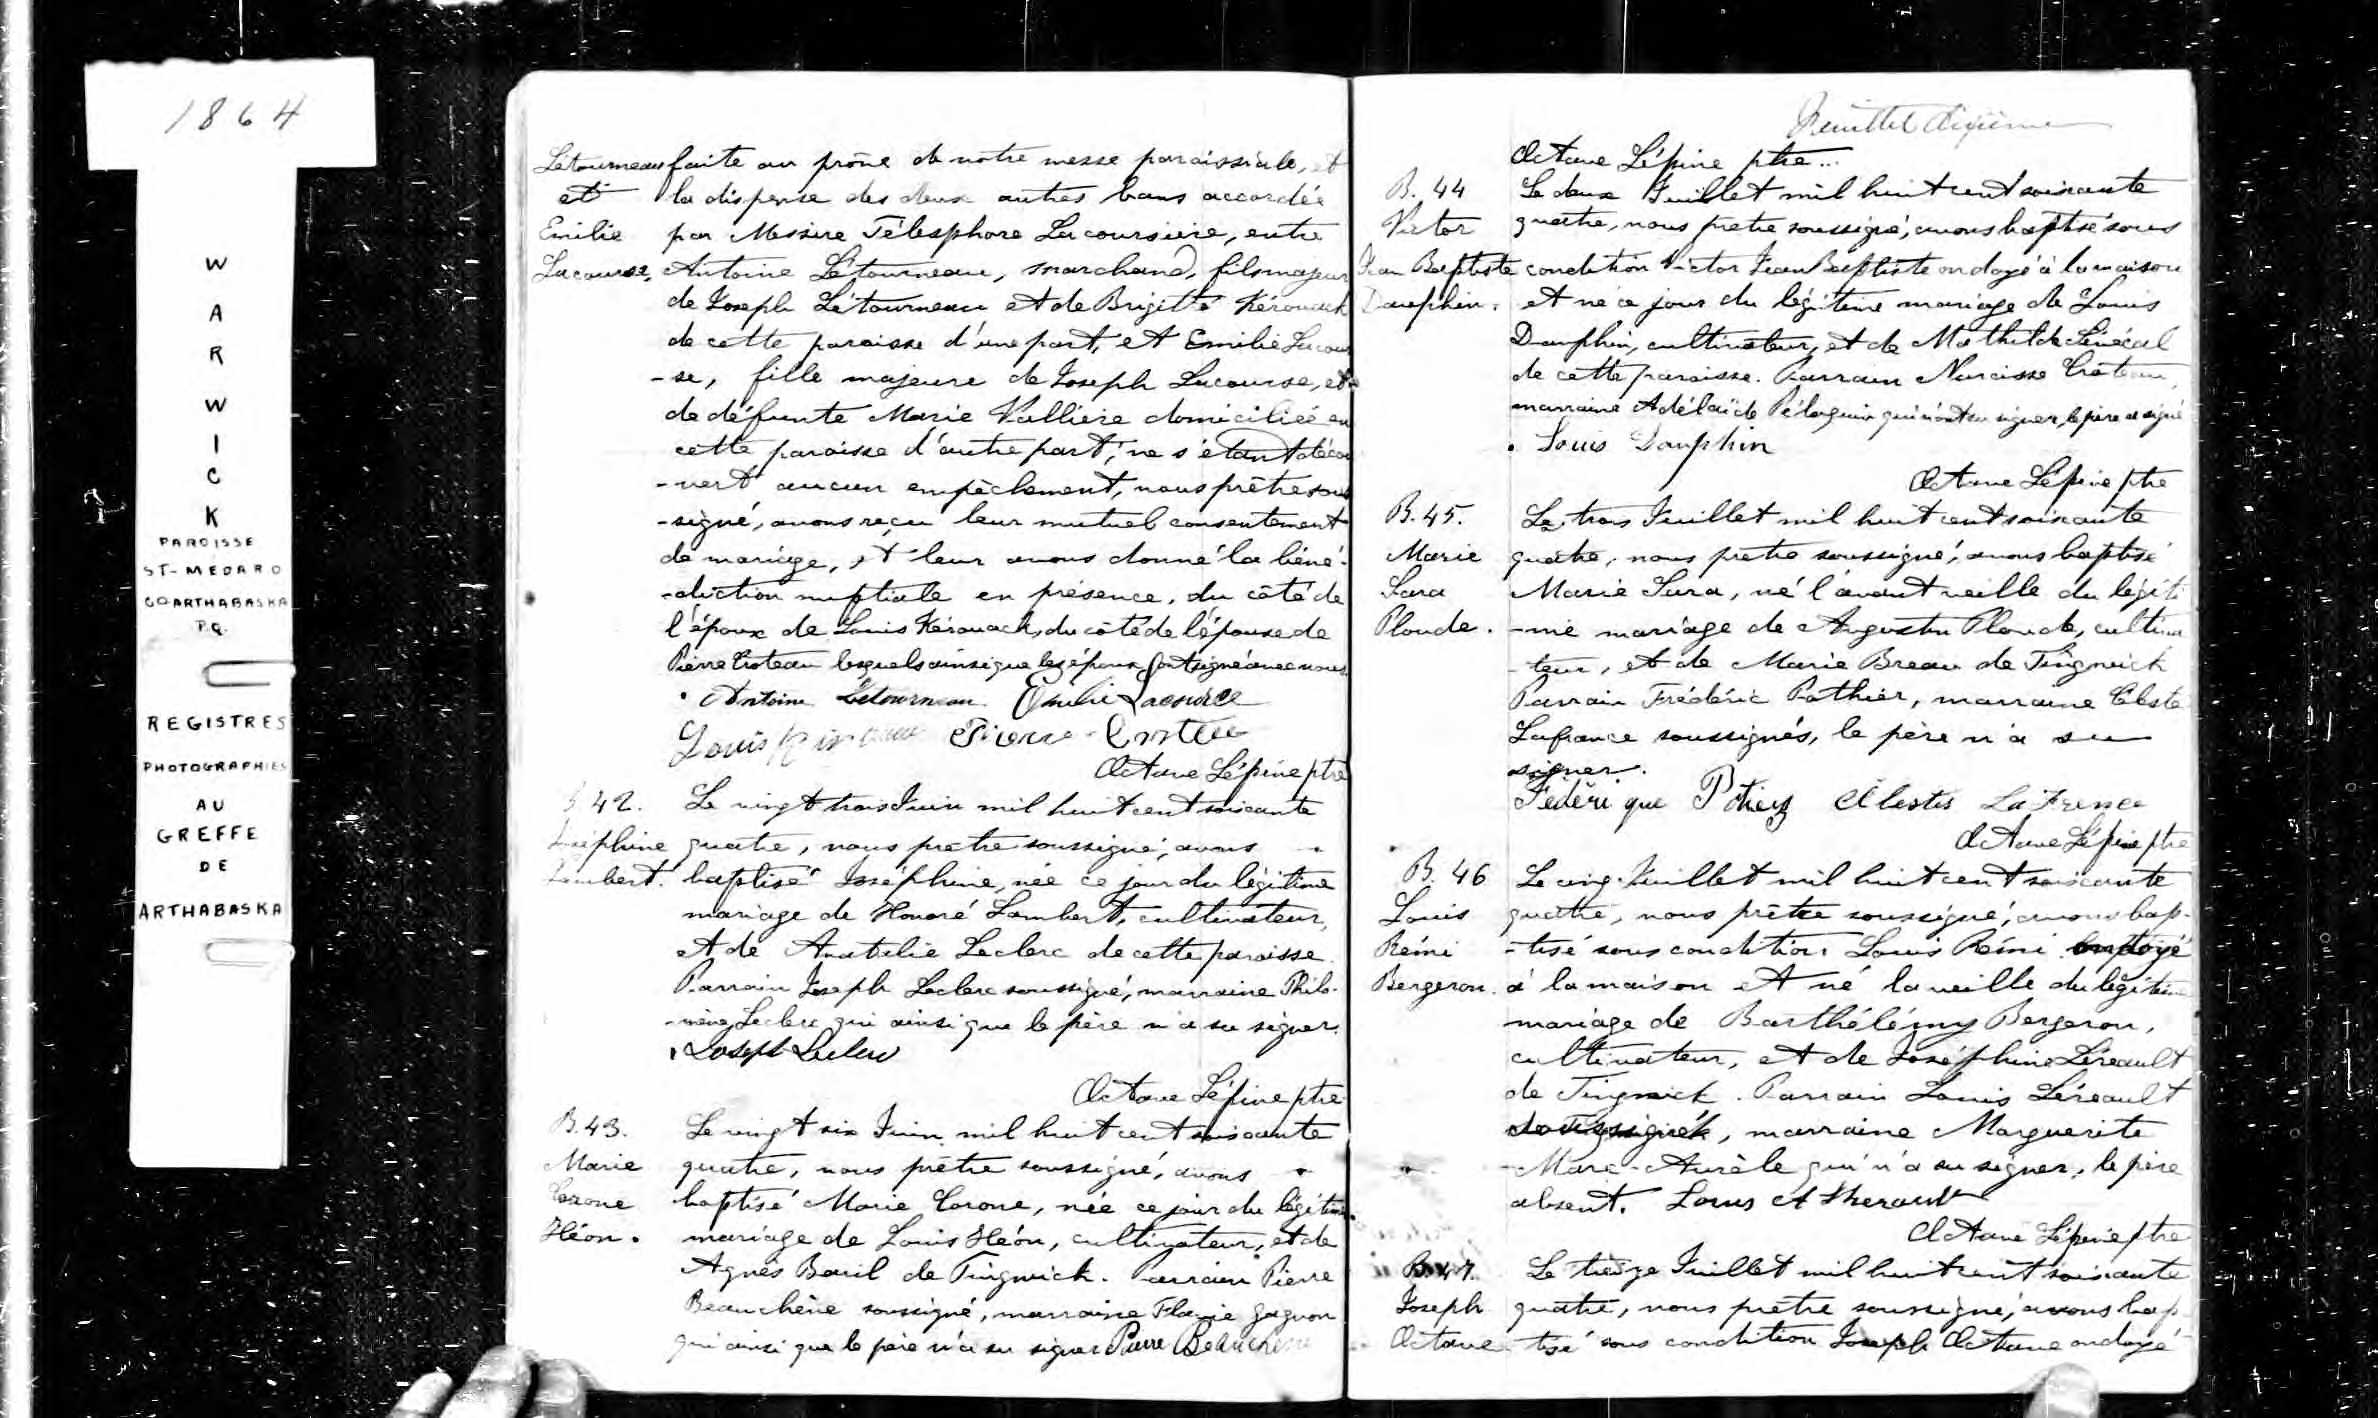 1864
W
A
R
W
I
C
K
PAROISSE
ST-MEDARD
CO ARTHABASKA
P.Q.
REGISTRES
PHOTOGRAPHIES
AU
GREFFE
DE
ARTHABASKA
Létourneau faite au prône de notre messe paroissiale, et
et la dispense des deux autres bans accordée
Emilie par Messire Télesphore Lacoursière, entre
Lacourse, Antoine Létourneau, marchand, fils majeur
de Joseph Létourneau et de Brigitte Kérouack
de cette paroisse d'une part, et Emilie Lacour
-se, fille majeure de Joseph Lacourse, et
de défunte Marie Vallière domiciliée en
cette paroisse d'autre part; ne s'étant décou
-vert aucun empêchement, nous prêtre sous
-signé, avons reçu leur mutuel consentement
de mariage, et leur avons donné la béné-
-diction nuptiale en présence, du côté de
l'époux de Louis Kérouack, du côté de l'épouse de
Pierre Croteau lesquels ainsi que les époux ont signé avec nous.
Antoine Létourneau Emilie Lacourse
Louis Pierre
Octave Lépine ptre
B 42. Le vingt trois Juin mil huit cent soixante
Joséphine quatre, nous prêtre soussigné, avons
Lambert. baptisé Joséphine, née ce jour du légitime
mariage de Honoré Lambert, cultivateur,
et de Anatalie Leclerc de cette paroisse.
Parrain Joseph Leclerc soussigné, marraine Philo-
-mène Leclerc qui ainsi que le père n'a su signer.
Joseph Leclerc
Octave Lépine ptre
B. 43. Le vingt six Juin mil huit cent soixante
Marie quatre, nous prêtre soussigné, avons
Corone baptisé Marie Corone, née ce jour du légitime
Héon. mariage de Louis Héon, cultivateur, et de
Agnès Baril de Tingwick. Parrain Pierre
Beauchêne soussigné, marraine Flavie Gagnon
qui ainsi que le père n'a su signer Pierre Beauchene
Feuillet dixième
Octave Lépine ptre...
B. 44 Le deux Juillet mil huit cent soixante
Victor quatre, nous prêtre soussigné, avons baptisé sous
Jean Baptiste condition Victor Jean Baptiste ondoyé à la maison
Dauphin. et né ce jour du légitime mariage de Louis
Dauphin, cultivateur, et de Mathilde Sénécal
de cette paroisse. Parrain Narcisse Croteau,
marraine Adélaïde Péloquin qui n'ont su signer, le père a signé
Louis Dauphin
Octave Lépine ptre
B. 45. Le trois Juillet mil huit cent soixante
Marie quatre, nous prêtre soussigné, avons baptisé
Sara Marie Sara, né l'avant veille du légiti
Plourde. -me mariage de Augustin Plourde, cultiva
-teur, et de Marie Breau de Tingwick
Parrain Frédéric Pothier, marraine Céleste
Lafrance soussignés, le père n'a su
signer.
Fedérique Potiez Célestes LaFrence
Octave Lépine ptre
B. 46 Le cinq Juillet mil huit cent soixante
Louis quatre, nous prêtre soussigné, avons bap-
Rémi -tisé sous condition Louis Rémi ondoyé
Bergeron. à la maison et né la veille du légitime
mariage de Barthélémy Bergeron,
cultivateur, et de Joséphine Léreault
de Tingwick. Parrain Louis Léreault
soussigné, marraine Marguerite
Marc-Aurèle qui n'a su signer, le père
absent. Louis
Octave Lépine ptre
B. 47. Le treize Juillet mil huit cent soixante
Joseph quatre, nous prêtre soussigné, avons bap
Octave -tisé sous condition Joseph Octave ondoyé